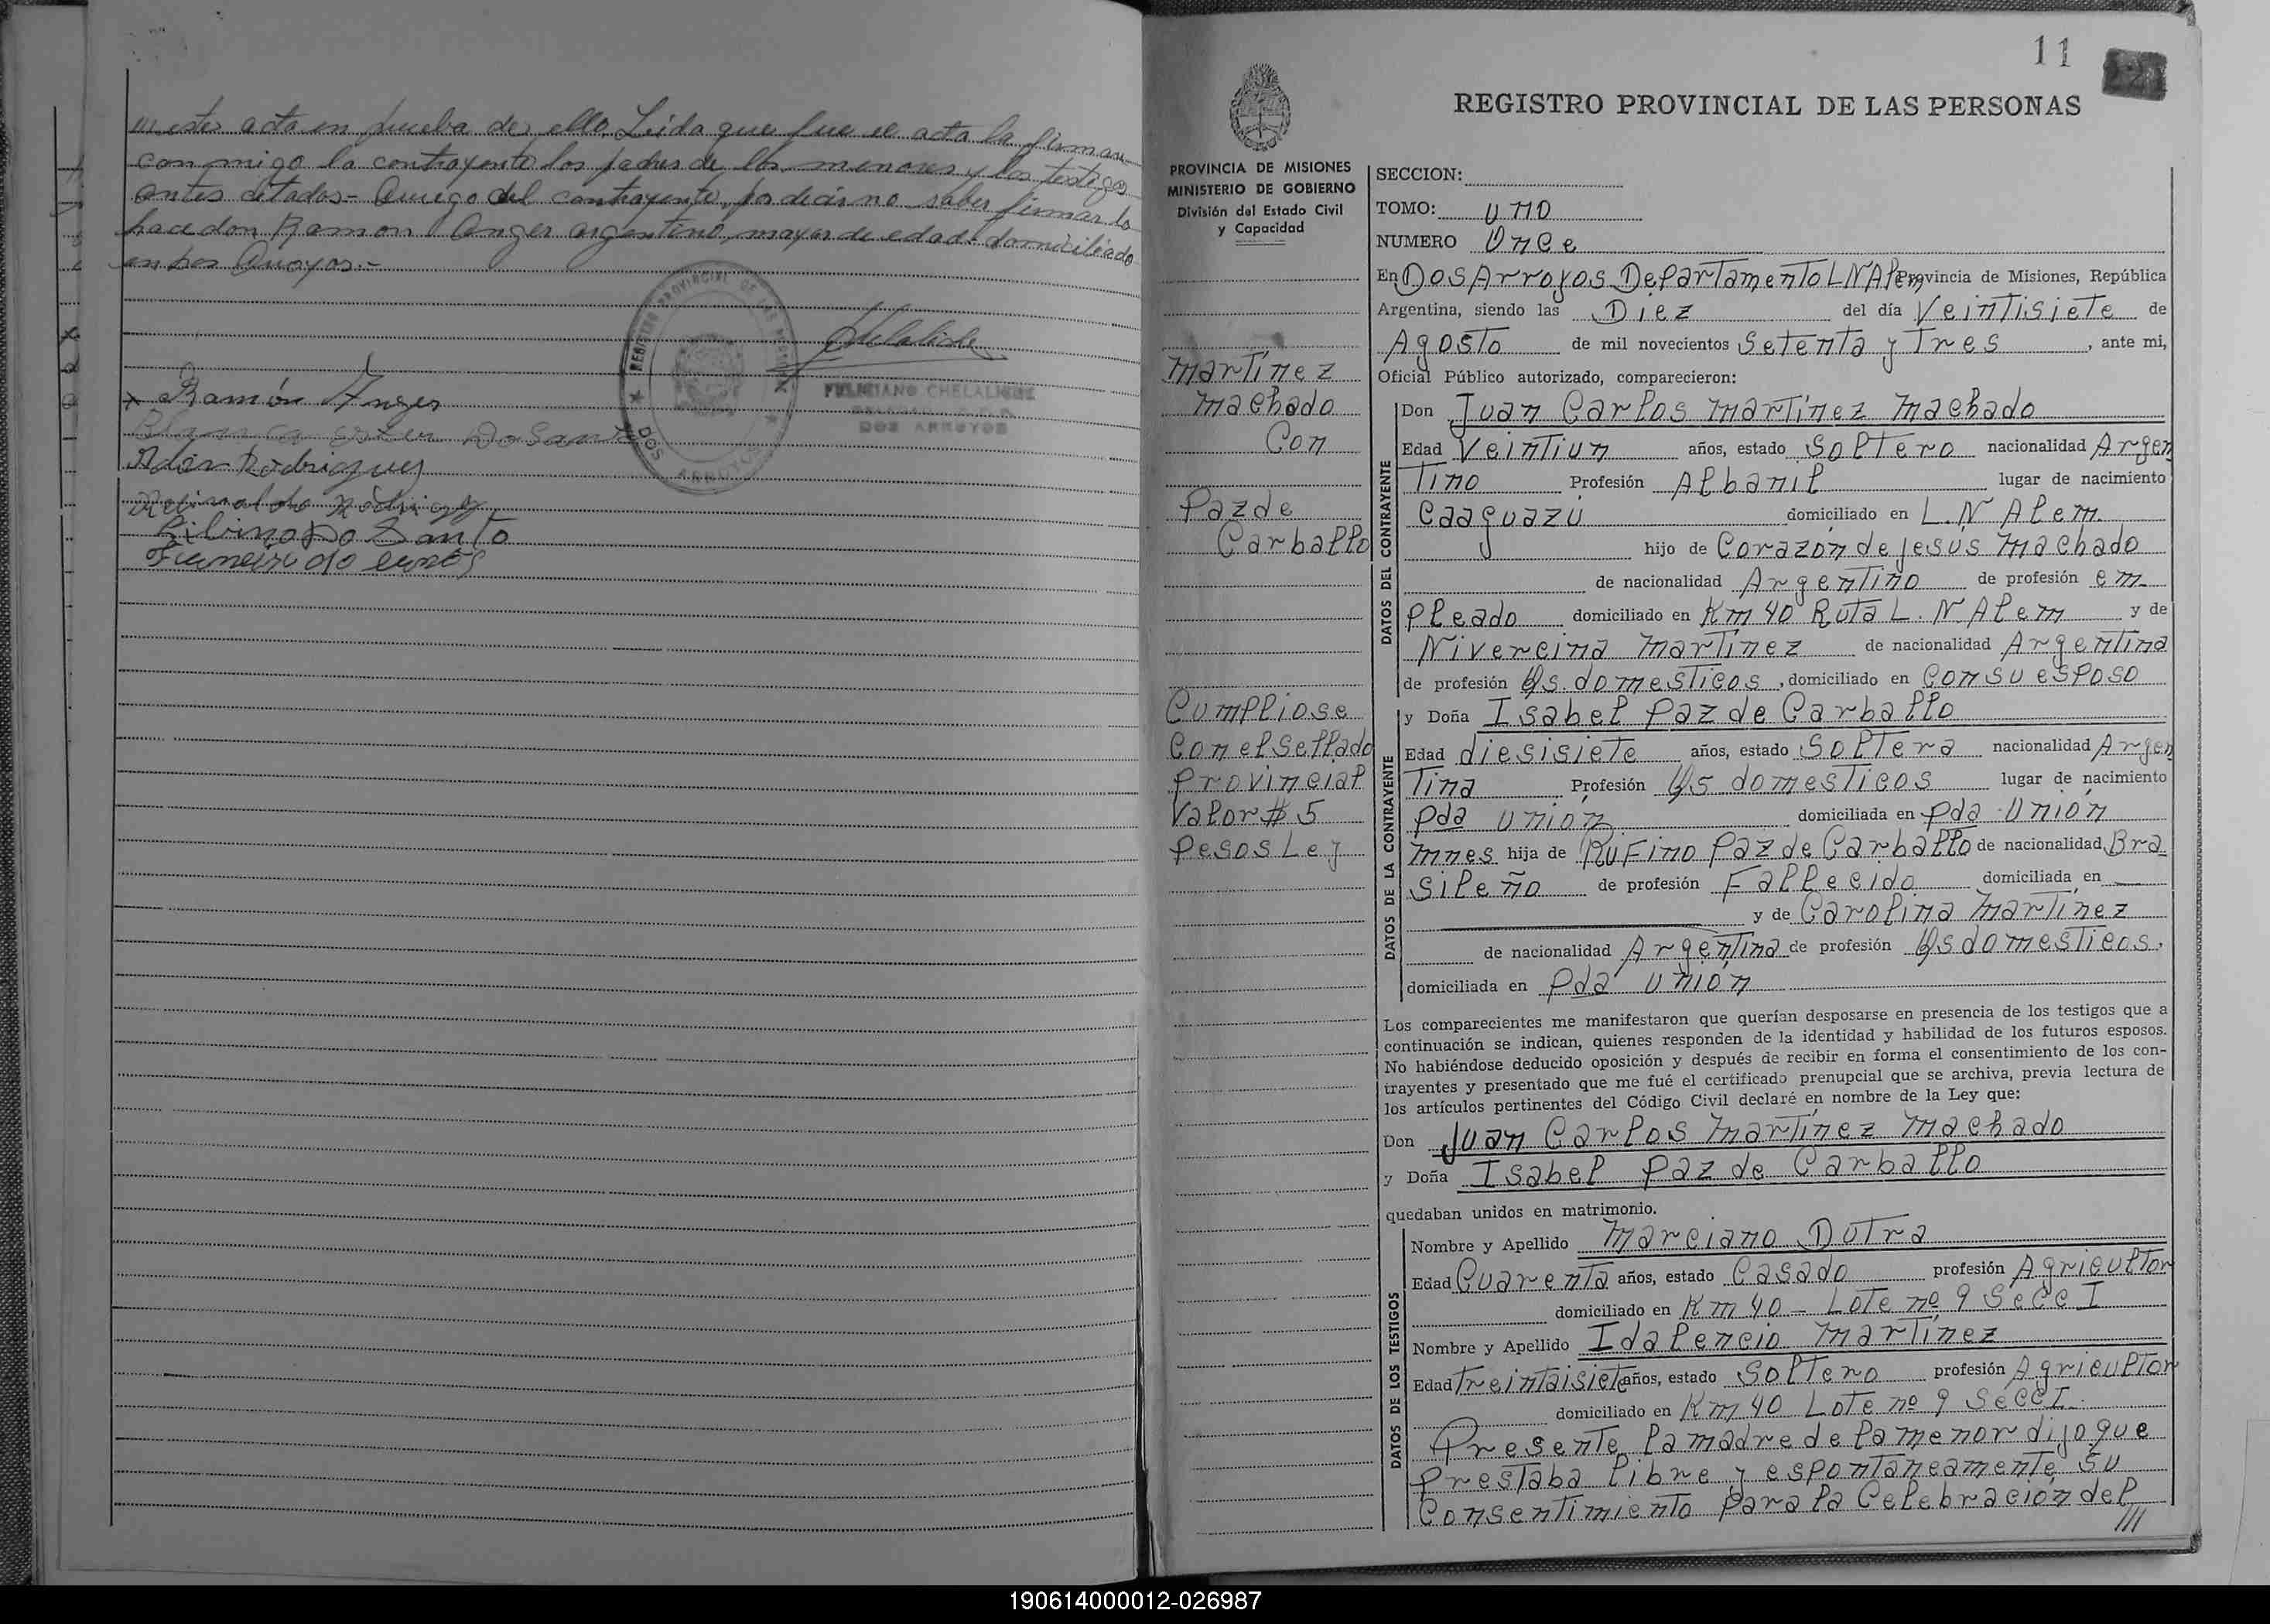 este acta en prueba de ello. Leida que fue el acta la firman
con migo la contrayente los padres de los menores y los testigos
antes citados - Aruego del contrayente, por decir no saber firmar lo
hace don Ramon Anger argentino, mayor de edad domiciliado
en Dos Arroyos.-
REGISTRO PROVINCIAL DE LAS PERSONAS
DOS ARROYOS
FELICIANO CHELALICHE
DOS ARROYOS
x Ramón Anger
Blanca Do Santo
Rodriguez
Rodriguez
Silvino Do Santo
11
REGISTRO PROVINCIAL DE LAS PERSONAS
PROVINCIA DE MISIONES
MINISTERIO DE GOBIERNO
División del Estado Civil
y Capacidad
Martínez
Machado
Con
Paz de
Carballo
Cumpliose
Con el Sellado
Provincial
Valor $ 5
Pesos Ley
SECCION:
TOMO: UNO
NUMERO Once
En Dos Arroyos Departamento L N Alem Provincia de Misiones, República
Argentina, siendo las Diez del día Veintisiete de
Agosto de mil novecientos Setenta y Tres, ante mi,
Oficial Público autorizado, comparecieron:
DATOS DEL CONTRAYENTE
Don Juan Carlos Martínez Machado
Edad Veintiun años, estado Soltero nacionalidad Argen
Tino Profesión Albanil lugar de nacimiento
Caaguazú domiciliado en L. N Alem.
hijo de Corazón de Jesus Machado
de nacionalidad Argentino de profesión em
pleado domiciliado en Km 40 Ruta L. N Alem y de
Nivercina Martinez de nacionalidad Argentina
de profesión Qs. domesticos, domiciliado en Con su esposo
DATOS DE LA CONTRAYENTE
y Doña Isabel Paz de Carballo
Edad diesisiete años, estado Soltera nacionalidad Argen
Tina Profesión Qs domesticos lugar de nacimiento
Pda Unión domiciliada en Pda Unión
Mnes hija de Rufino Paz de Carballo de nacionalidad Bra
sileño de profesión Fallecido domiciliada en
y de Carolina Martinez
de nacionalidad Argentina de profesión Qs domesticos.
domiciliada en Pda Unión
Los comparecientes me manifestaron que querían desposarse en presencia de los testigos que a
continuación se indican, quienes responden de la identidad y habilidad de los futuros esposos.
No habiéndose deducido oposición y después de recibir en forma el consentimiento de los con-
trayentes y presentado que me fué el certificado prenupcial que se archiva, previa lectura de
los artículos pertinentes del Código Civil declaré en nombre de la Ley que:
Don Juan Carlos Martínez Machado
y Doña Isabel Paz de Carballo
quedaban unidos en matrimonio.
DATOS DE LOS TESTIGOS
Nombre y Apellido Marciano Dutra
Edad Cuarenta años, estado Casado profesión Agricultor
domiciliado en Km 40 - Lote nº 9 Secc I
Nombre y Apellido Idalencio Martínez
Edad Treintaisiete años, estado Soltero profesión Agricultor
domiciliado en Km 40 Lote nº 9 Secc I.
Presente la madre de la menor dijo que
prestaba libre y espontaneamente su
Consentimiento para la Celebración del
///
190614000012-026987